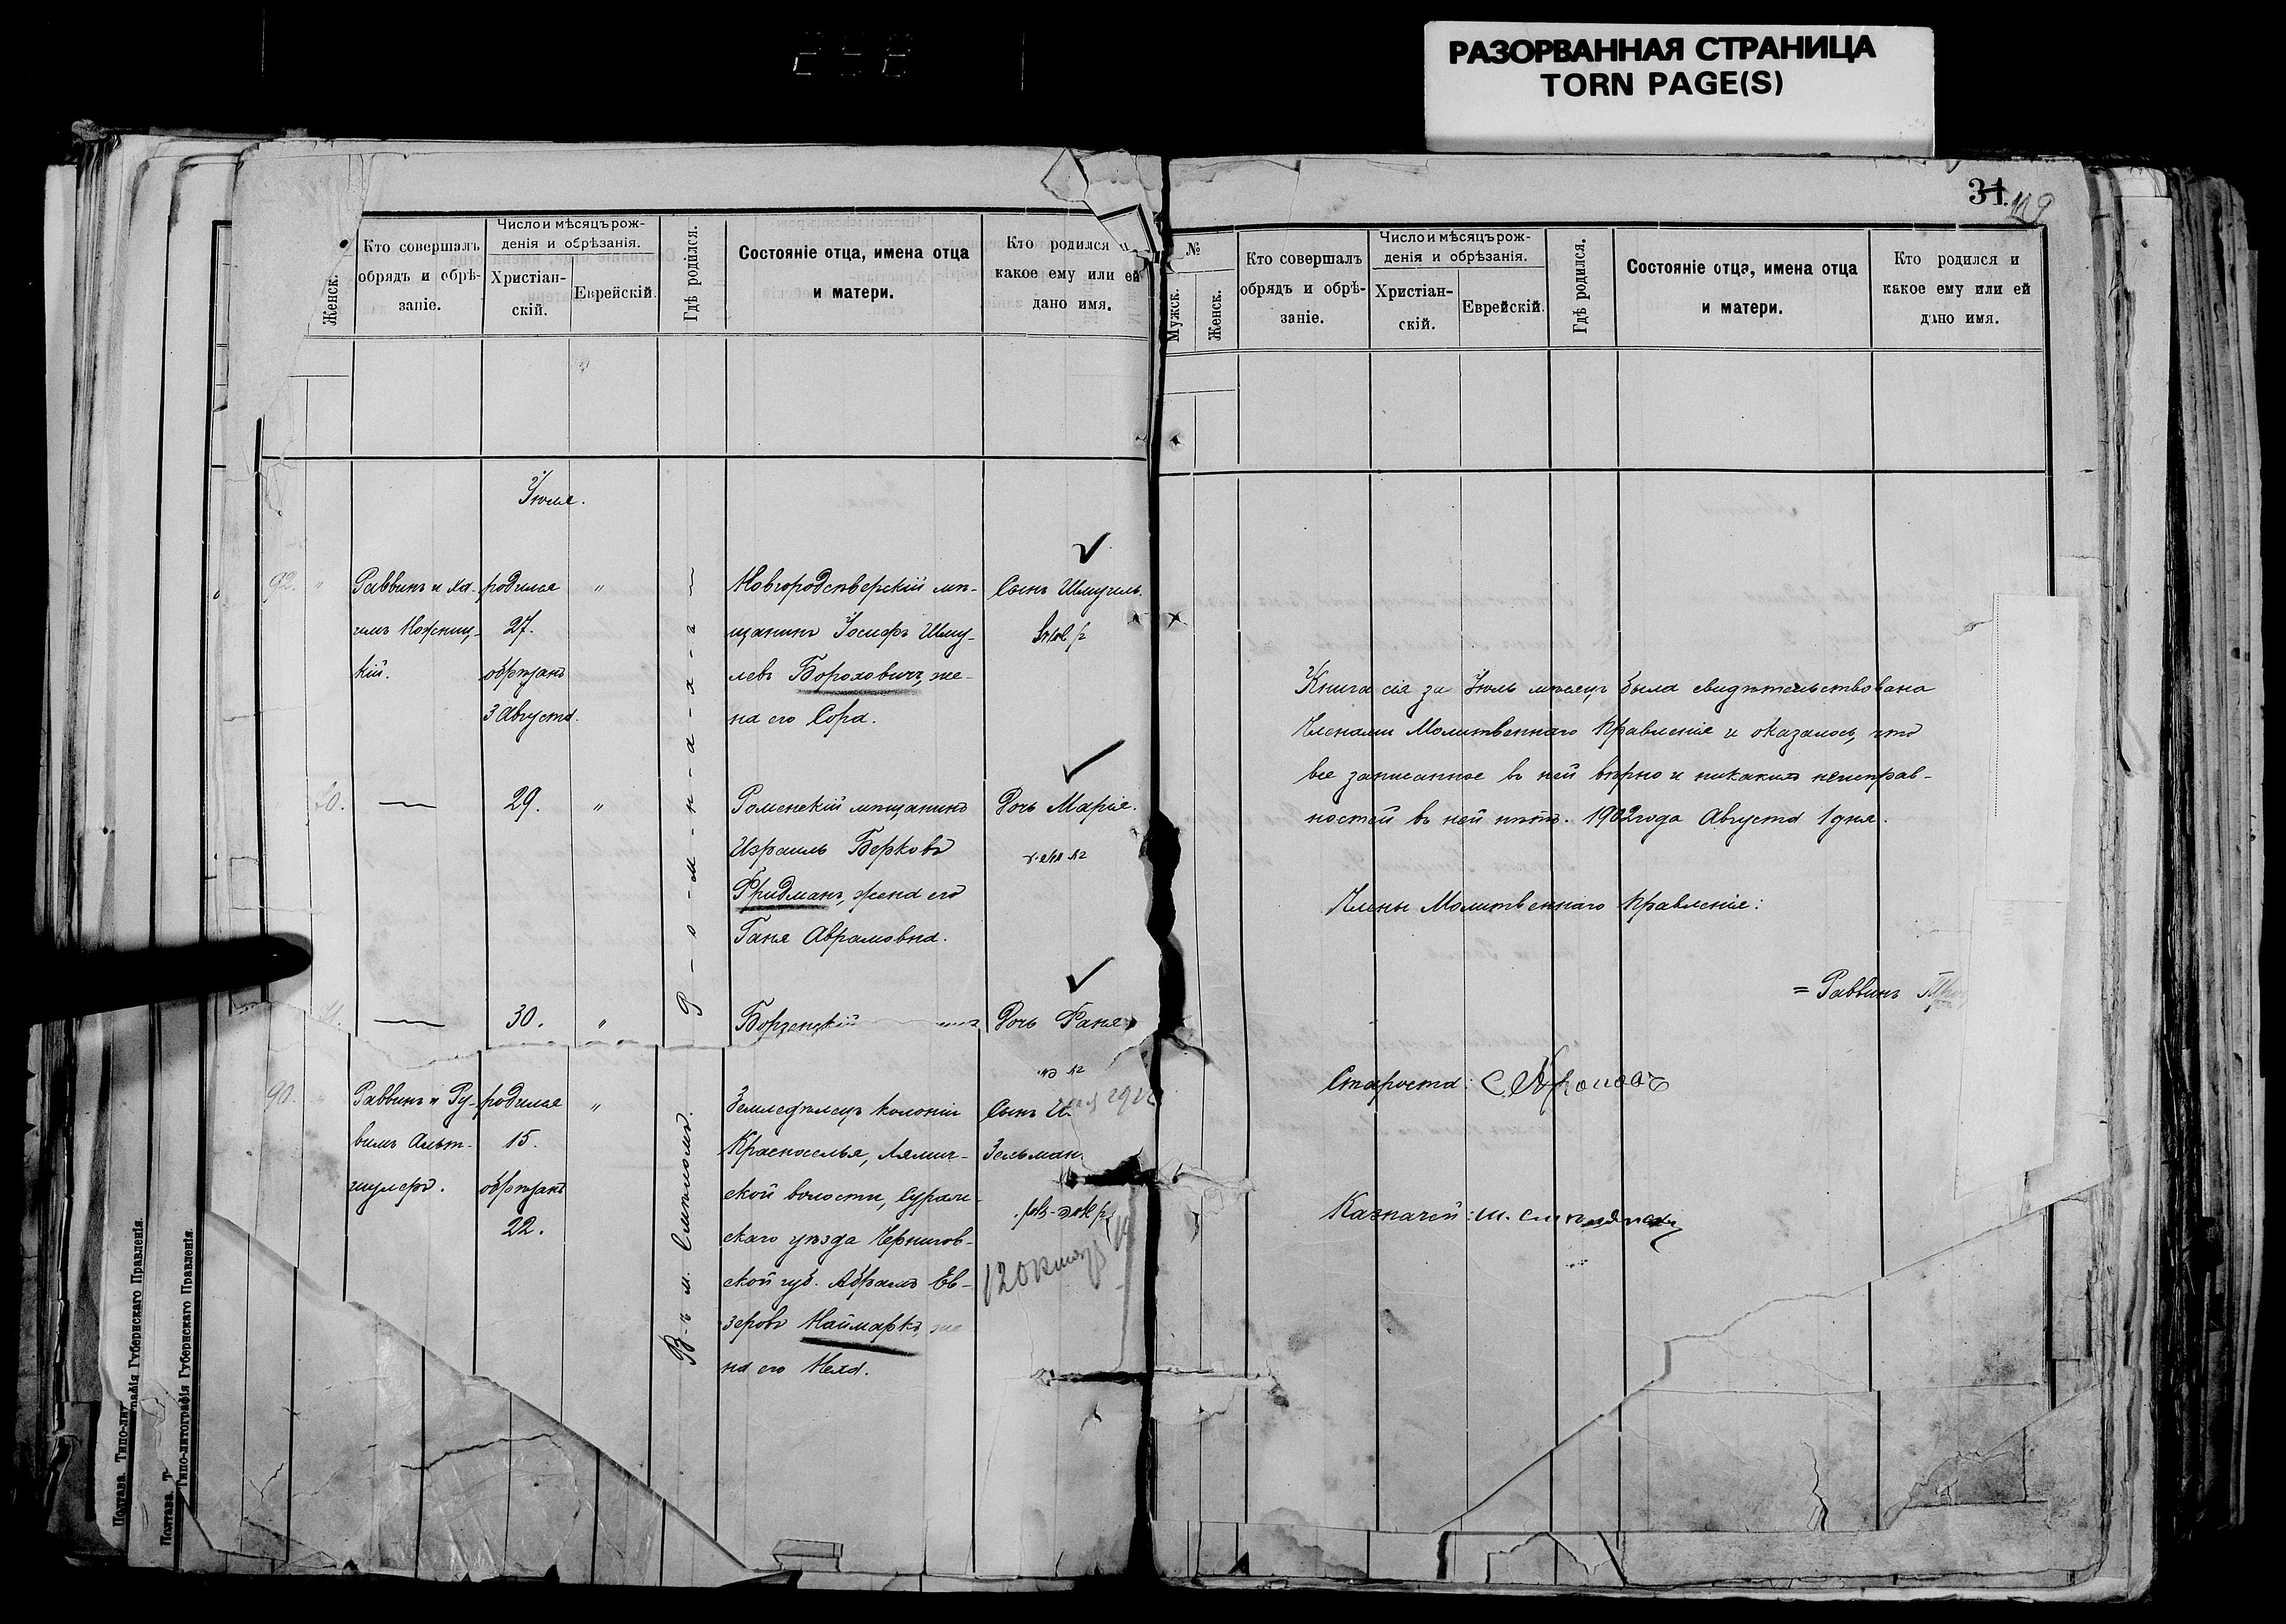 РАЗОРВАННАЯ СТРАНИЦА
TORN PAGE(S)
Женск.
Кто совершалъ
обрядъ и обрѣ-
заніе.
Число и мѣсяцъ рож-
денія и обрѣзанія.
Христіан-
скій.
Еврейскій.
Гдѣ родился.
Состояніе отца, имена отца
и матери.
Кто родился и
какое ему или ей
дано имя.
Іюля.
92. "
Раввинъ и Ха-
кій.
родился
27.
обрѣзанъ
3 Августа.
"
Р-о-м-н-а-х-ъ
Новгородсѣверскій мѣ-
щанинъ Іосифъ Шму-
левъ Бороховичъ, же-
на его Сора.
Сынъ Шмуилъ.
20.
29.
"
Роменскій мѣщанинъ
Израиль Берковъ
Фридманъ, жена его
Ганя Абрамовна.
Дочь Марія.
30.
"
Борзенскій
Дочь Раня
90.
Раввинъ и Ру-
вимъ Альт-
шулеръ.
родился
15.
обрѣзанъ
22.
"
Въ м. Смѣломъ.
Земледѣлецъ колоніи
Красноселья, Лялич-
ской волости, Сураж-
скаго уѣзда Чернигов-
ской губ. Абрамъ Ев-
зеровъ Наймаркъ, же
на его Неха.
Сынъ
Зельман
Полтава. Типо-литографія Губернскаго Правленія.
Типо-литографія Губернскаго Правленія.
31.
119
№
Мужск.
Женск.
Кто совершалъ
обрядъ и обрѣ-
заніе.
Число и мѣсяцъ рож-
денія и обрѣзанія.
Христіан-
скій.
Еврейскій.
Гдѣ родился.
Состояніе отца, имена отца
и матери.
Кто родился и
какое ему или ей
дано имя.
Книга сія за Іюль мѣсяцъ была свидѣтельствована
Членами Молитвеннаго Правленія и оказалось, что
все записанное въ ней вѣрно и никакихъ неисправ-
ностей въ ней нѣтъ. 1902 года Августа 1 дня.
Члены Молитвеннаго Правленія:
= Раввинъ
Староста:
Казначей: Ш.